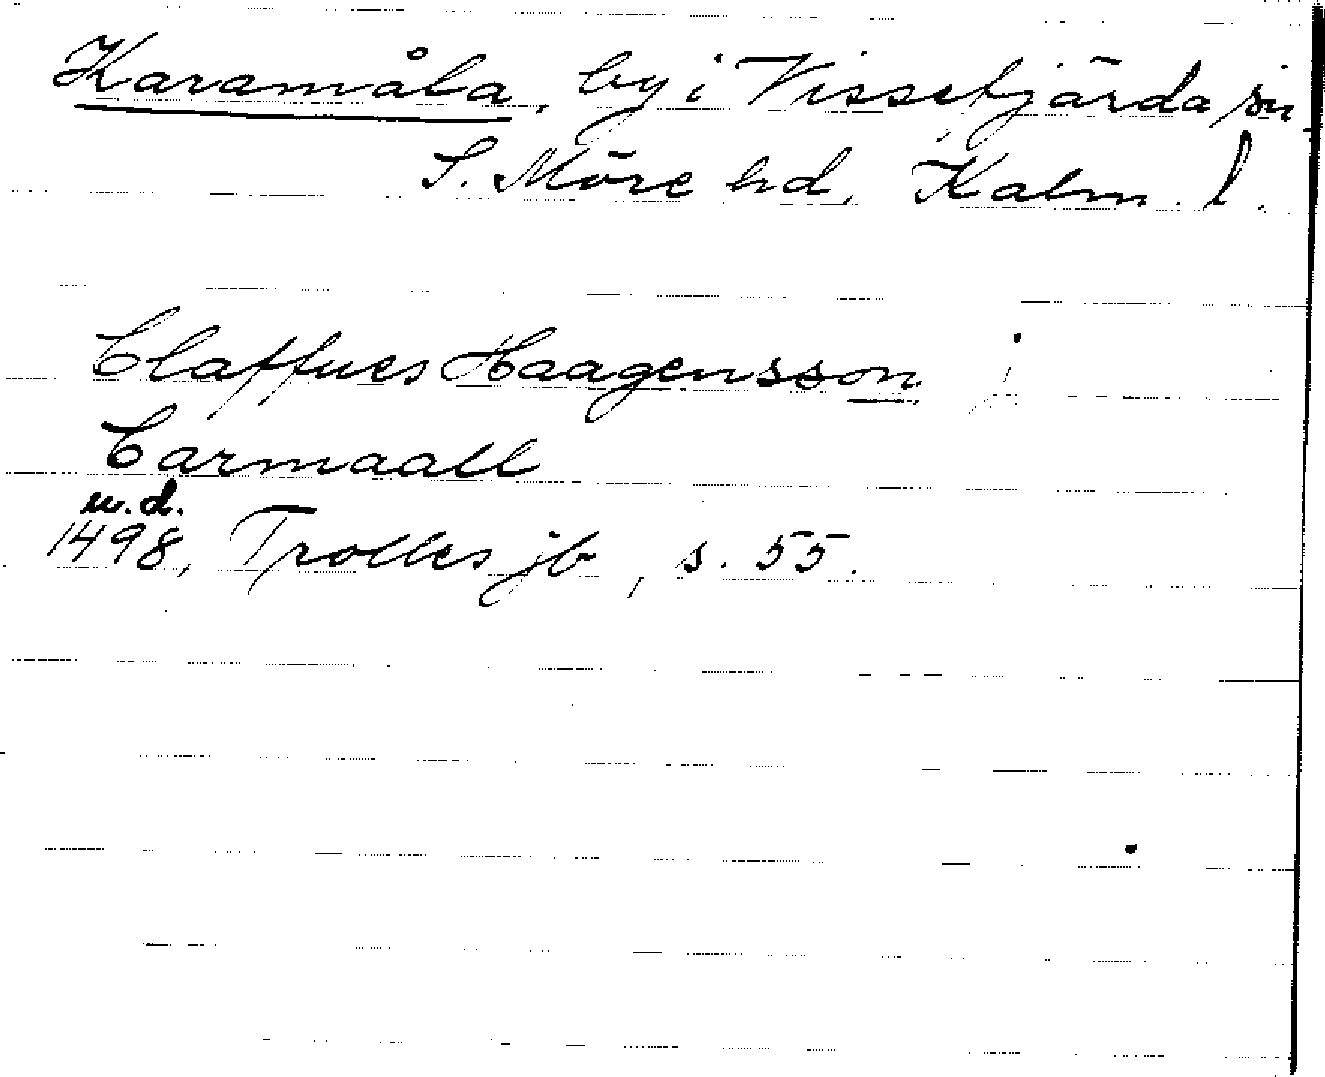 Karamåla, by i Vissefjärda sn
S. Möre hd, Kalm. l.
Claffues Haagensson j
Carmaall
u.d.
1498, Trolles jb, s. 55.